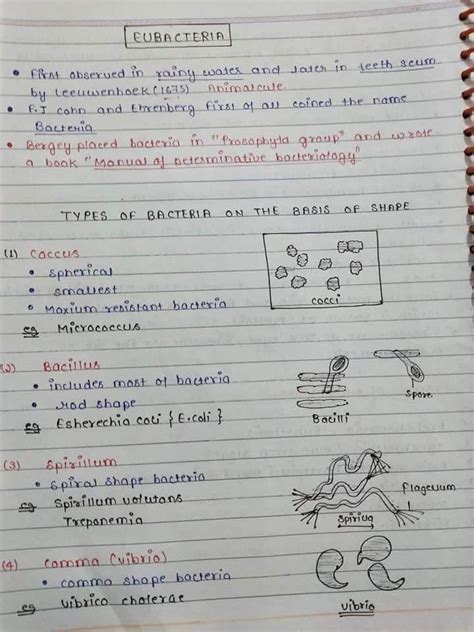 EUBACTERIA
• First observed in rainy water and later in teeth scum
by Leeuwenhoek (1675) Animalcule
• F.J cohn and Ehrenberg first of all coined the name
Bacteria
• Bergey placed bacteria in "Prosophyta group" and wrote
a book "Manual of Determinative bacteriology"
TYPES OF BACTERIA ON THE BASIS OF SHAPE
(1) Coccus
• spherical
• smallest
• Maxium resistant bacteria
eg Micrococcus
cocci
(2) Bacillus
• includes most of bacteria
• rod shape
eg Esherechia coli { E.coli }
Bacilli
spore
(3) Spirillum
• Spiral shape bacteria
eg Spirillum volutans
Treponemia
flagellum
(4) Comma (vibrio)
• comma shape bacteria
eg vibrico cholerae
vibrio